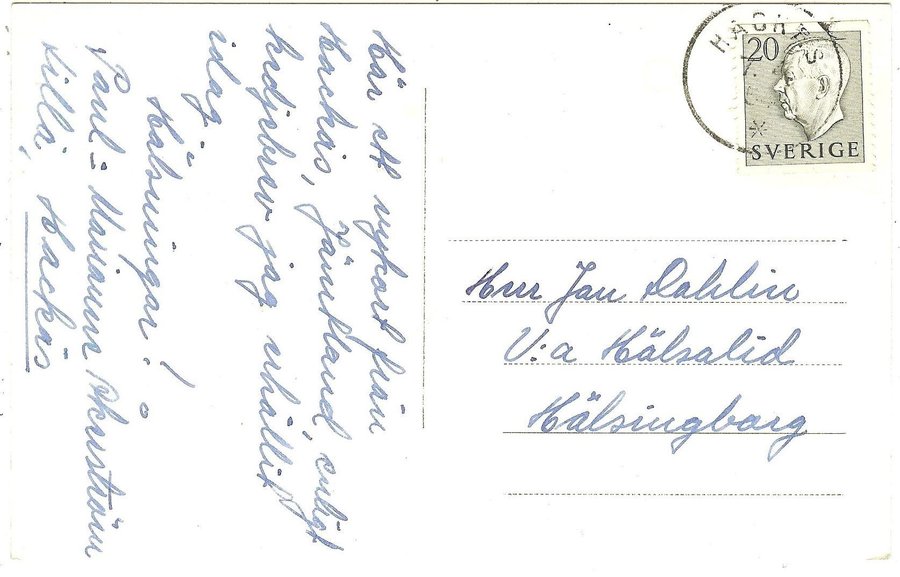 Här ett vykort från
Hackås, Jämtland, enligt
kedjebrev jag erhållit
idag.
Hälsningar!
Paul-Mariann Åkerström
Hackås
HACKÅS
20
SVERIGE
Herr Jan Dahlin
V:a Hälsalid
Hälsingborg